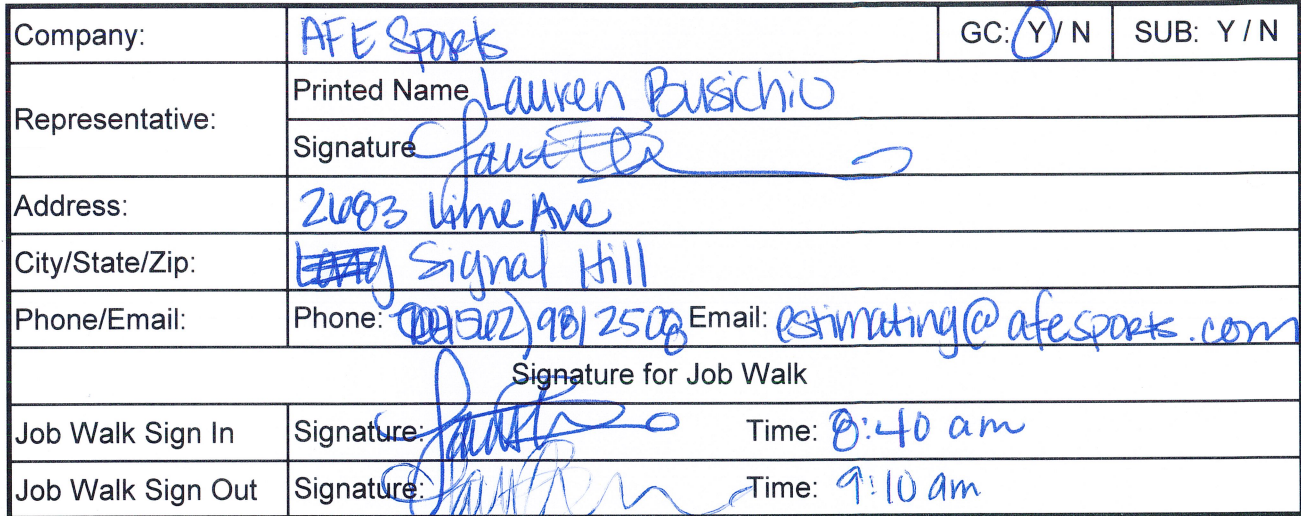 Company: AFE Sports GC: Y / N SUB: Y / N
Representative: Printed Name Lauren Busichio
Signature
Address: 2683 Lime Ave
City/State/Zip: Signal Hill
Phone/Email: Phone: (562) 981 2508 Email: estimating@afesports.com
Signature for Job Walk
Job Walk Sign In Signature: Time: 8:40 am
Job Walk Sign Out Signature: Time: 9:10 am